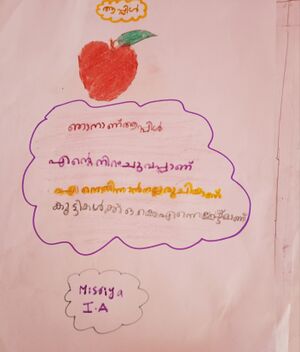 ആപ്പിൾ
ഞാനാണ് ആപ്പിൾ
എന്റെ നിറം ചുവപ്പാണ്
എന്നെ തിന്നാൻ നല്ല രുചിയാണ്
കുട്ടികൾക്ക് ഒക്കെ എന്നെ ഇഷ്ട്ടമാണ്
Misriya
I.A